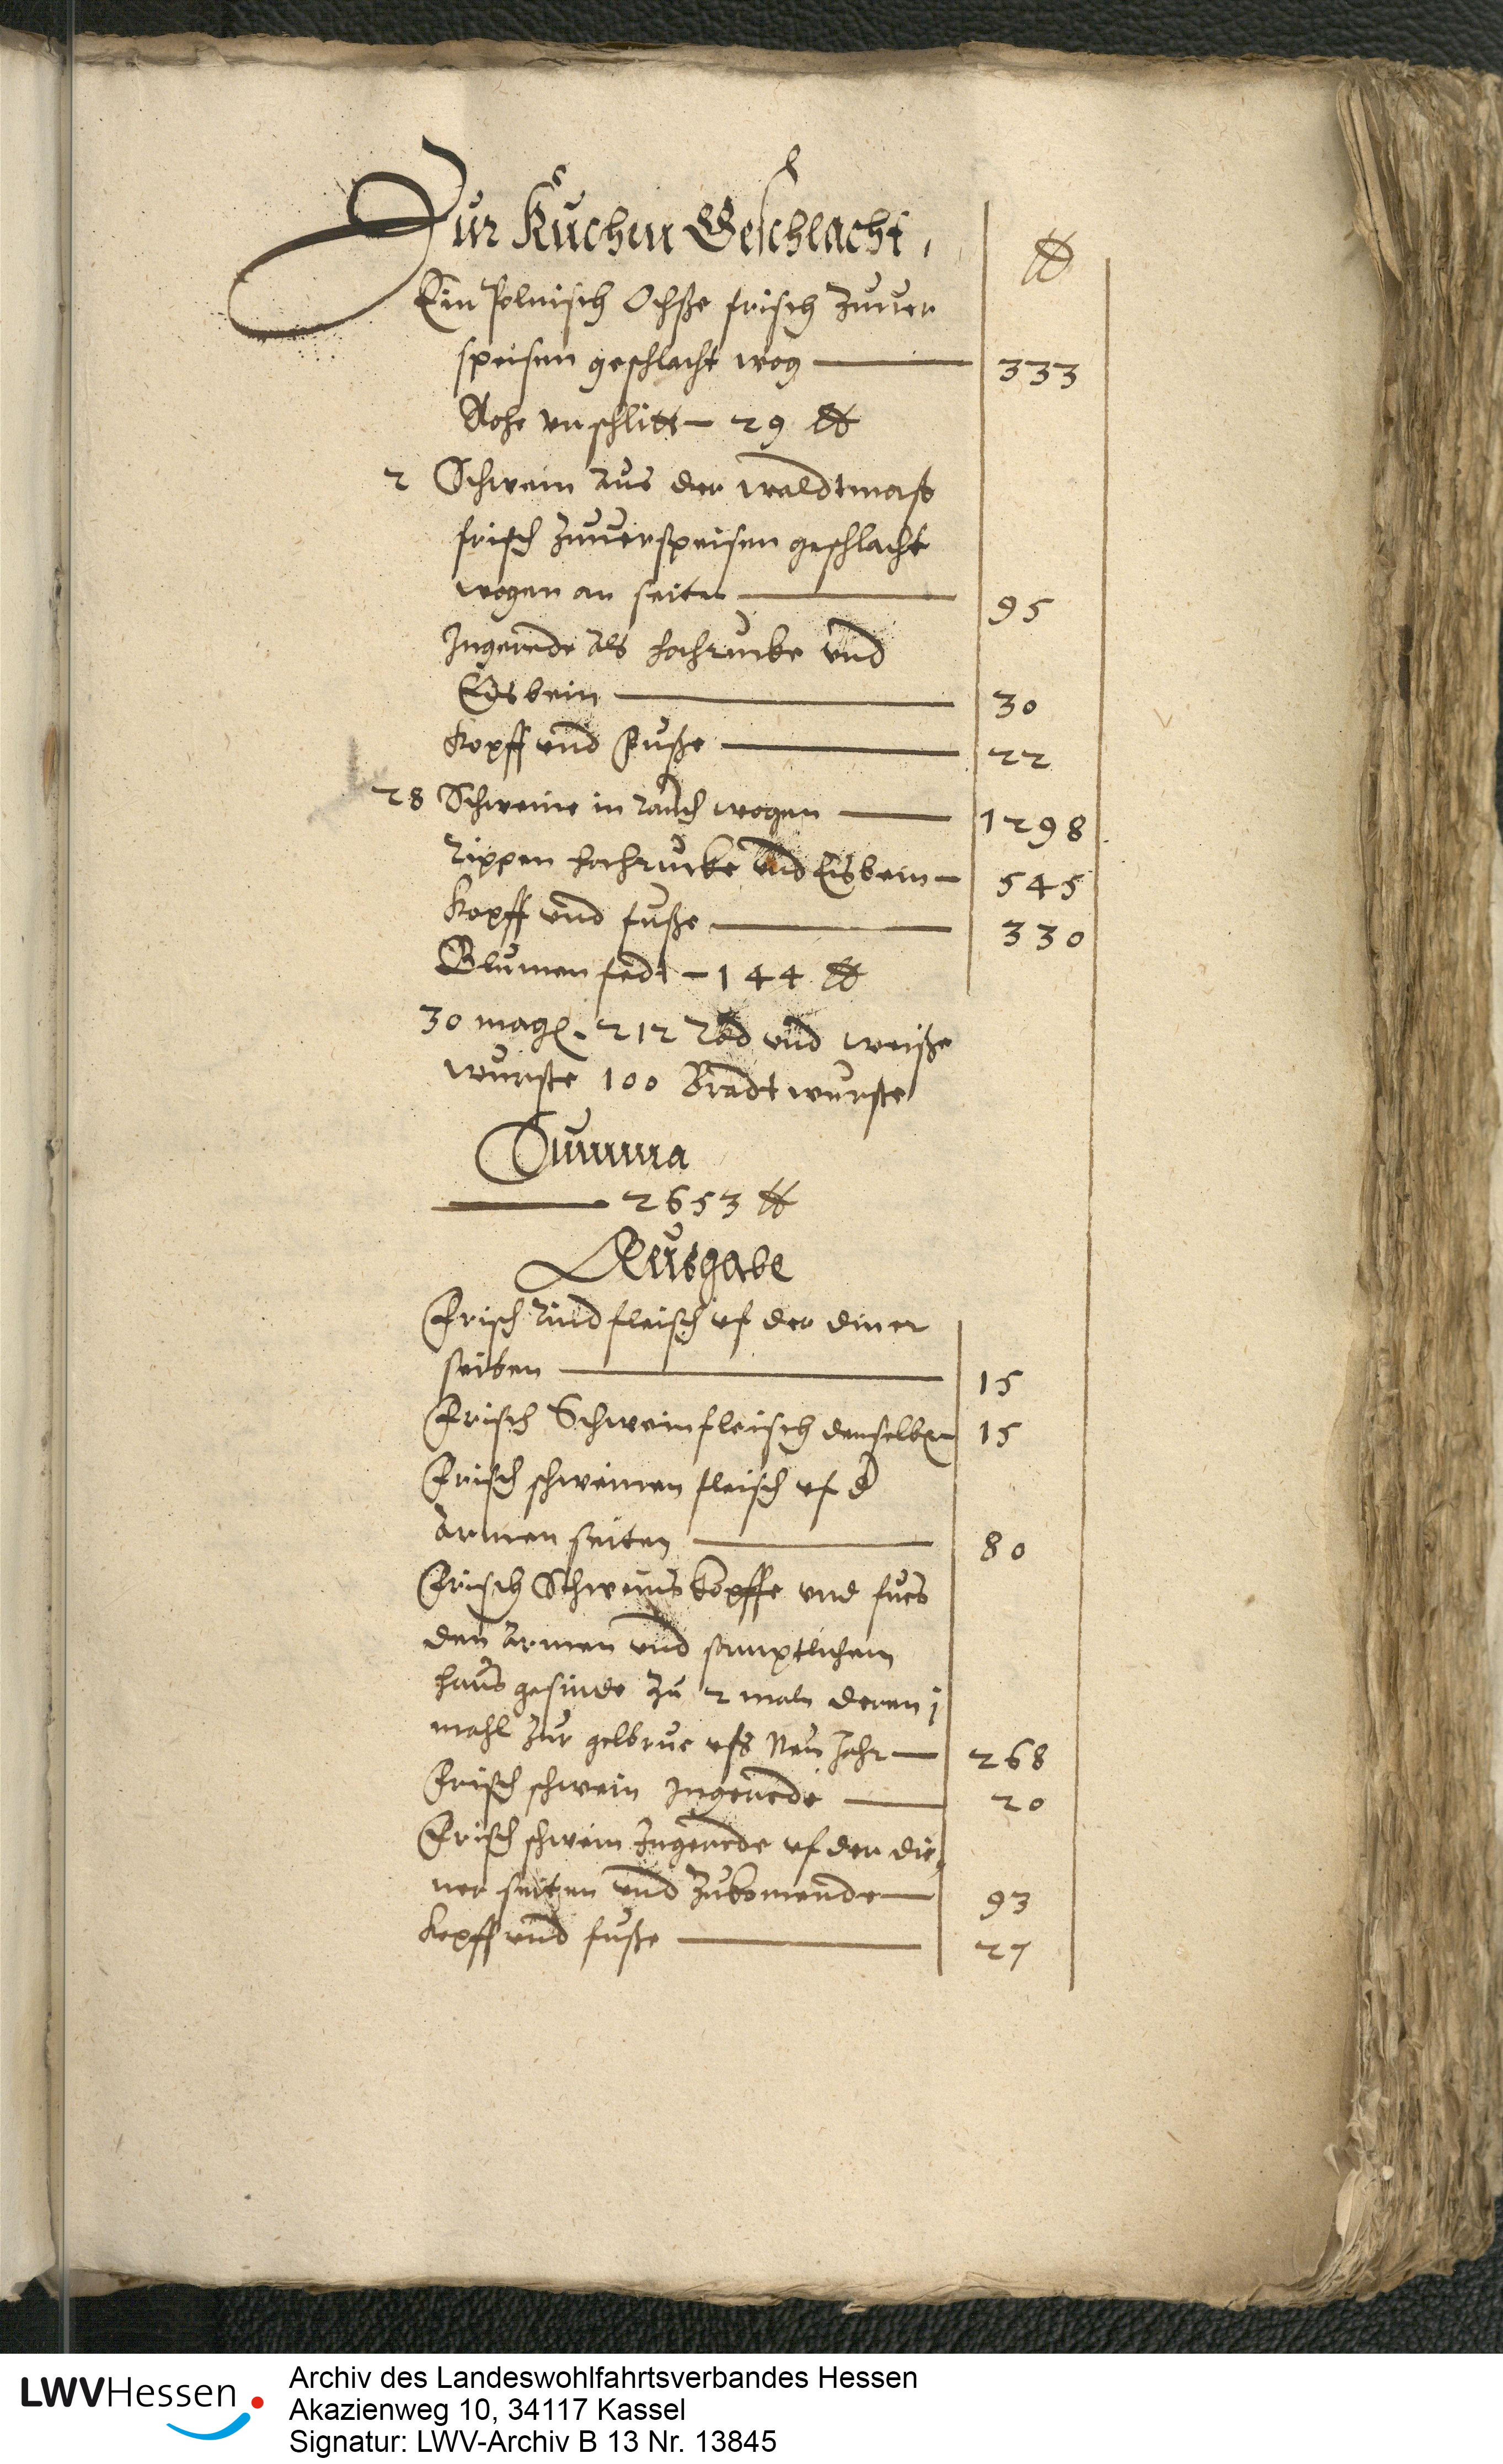 Zur Kuchen Geschlacht,
℔
Ein Polnisch Ochße frisch Zuuer
speisen geschlacht wog — 333
Rohe vnschlitt — 29 ℔
2 Schwein aus der waldtmast
frisch Zuuerspeisen geschlacht
wogen an seiten — 95
Ingerede als hochrucke vnd
Eisbein — 30
Kopff vnd Fuße — 22
28 Schweine in rauch wogen — 1298
Rippen hochrucke vnd Eisbein — 545
Kopff vnd fuße — 330
Blumen fedt — 144 ℔
30 mag. 212 Rod vnd weiße
wurste 100 Bradtwurste
Summa
— 2653 ℔
Ausgabe
Frisch Rindfleisch vf der diner
seiten — 15
Frisch Schweinfleisch denselben 15
Frisch schweinen fleisch vf d
Armen seiten — 80
Frisch Schweins kopffe vnd fues
den Armen vnd samptlichem
haus gesinde zu 2 maln deren j
mahl zur vfs Neu Jahr — 268
Frisch schwein Ingerede — 20
Frisch schwein Ingerede vf der die
ner seiten vnd Zukomende — 93
Kopff vnd fuße — 27
LWVHessen
Archiv des Landeswohlfahrtsverbandes Hessen
Akazienweg 10, 34117 Kassel
Signatur: LWV-Archiv B 13 Nr. 13845